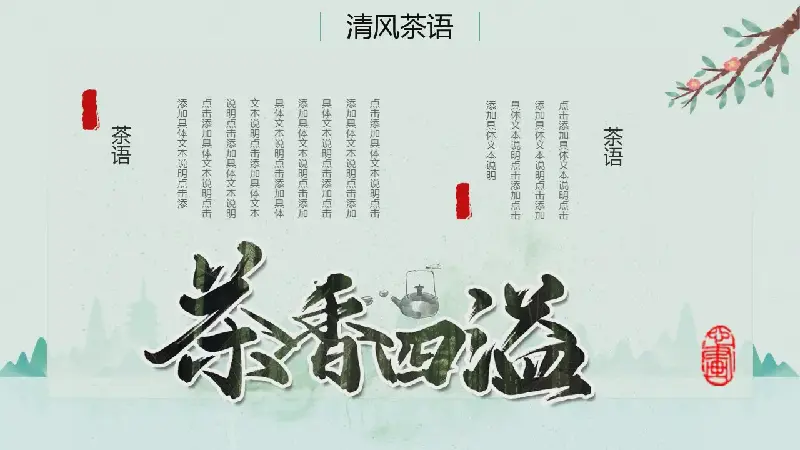 清风茶语
茶语
点击添加具体文本说明点击
添加具体文本说明点击添加
具体文本说明点击添加点击
添加具体文本说明
点击添加具体文本说明点击
添加具体文本说明点击添加
具体文本说明点击添加点击
添加具体文本说明点击添加
具体文本说明点击添加具体
文本说明点击添加具体文本
说明点击添加具体文本说明
点击添加具体文本说明点击
添加具体文本说明点击添
茶语
茶香四溢